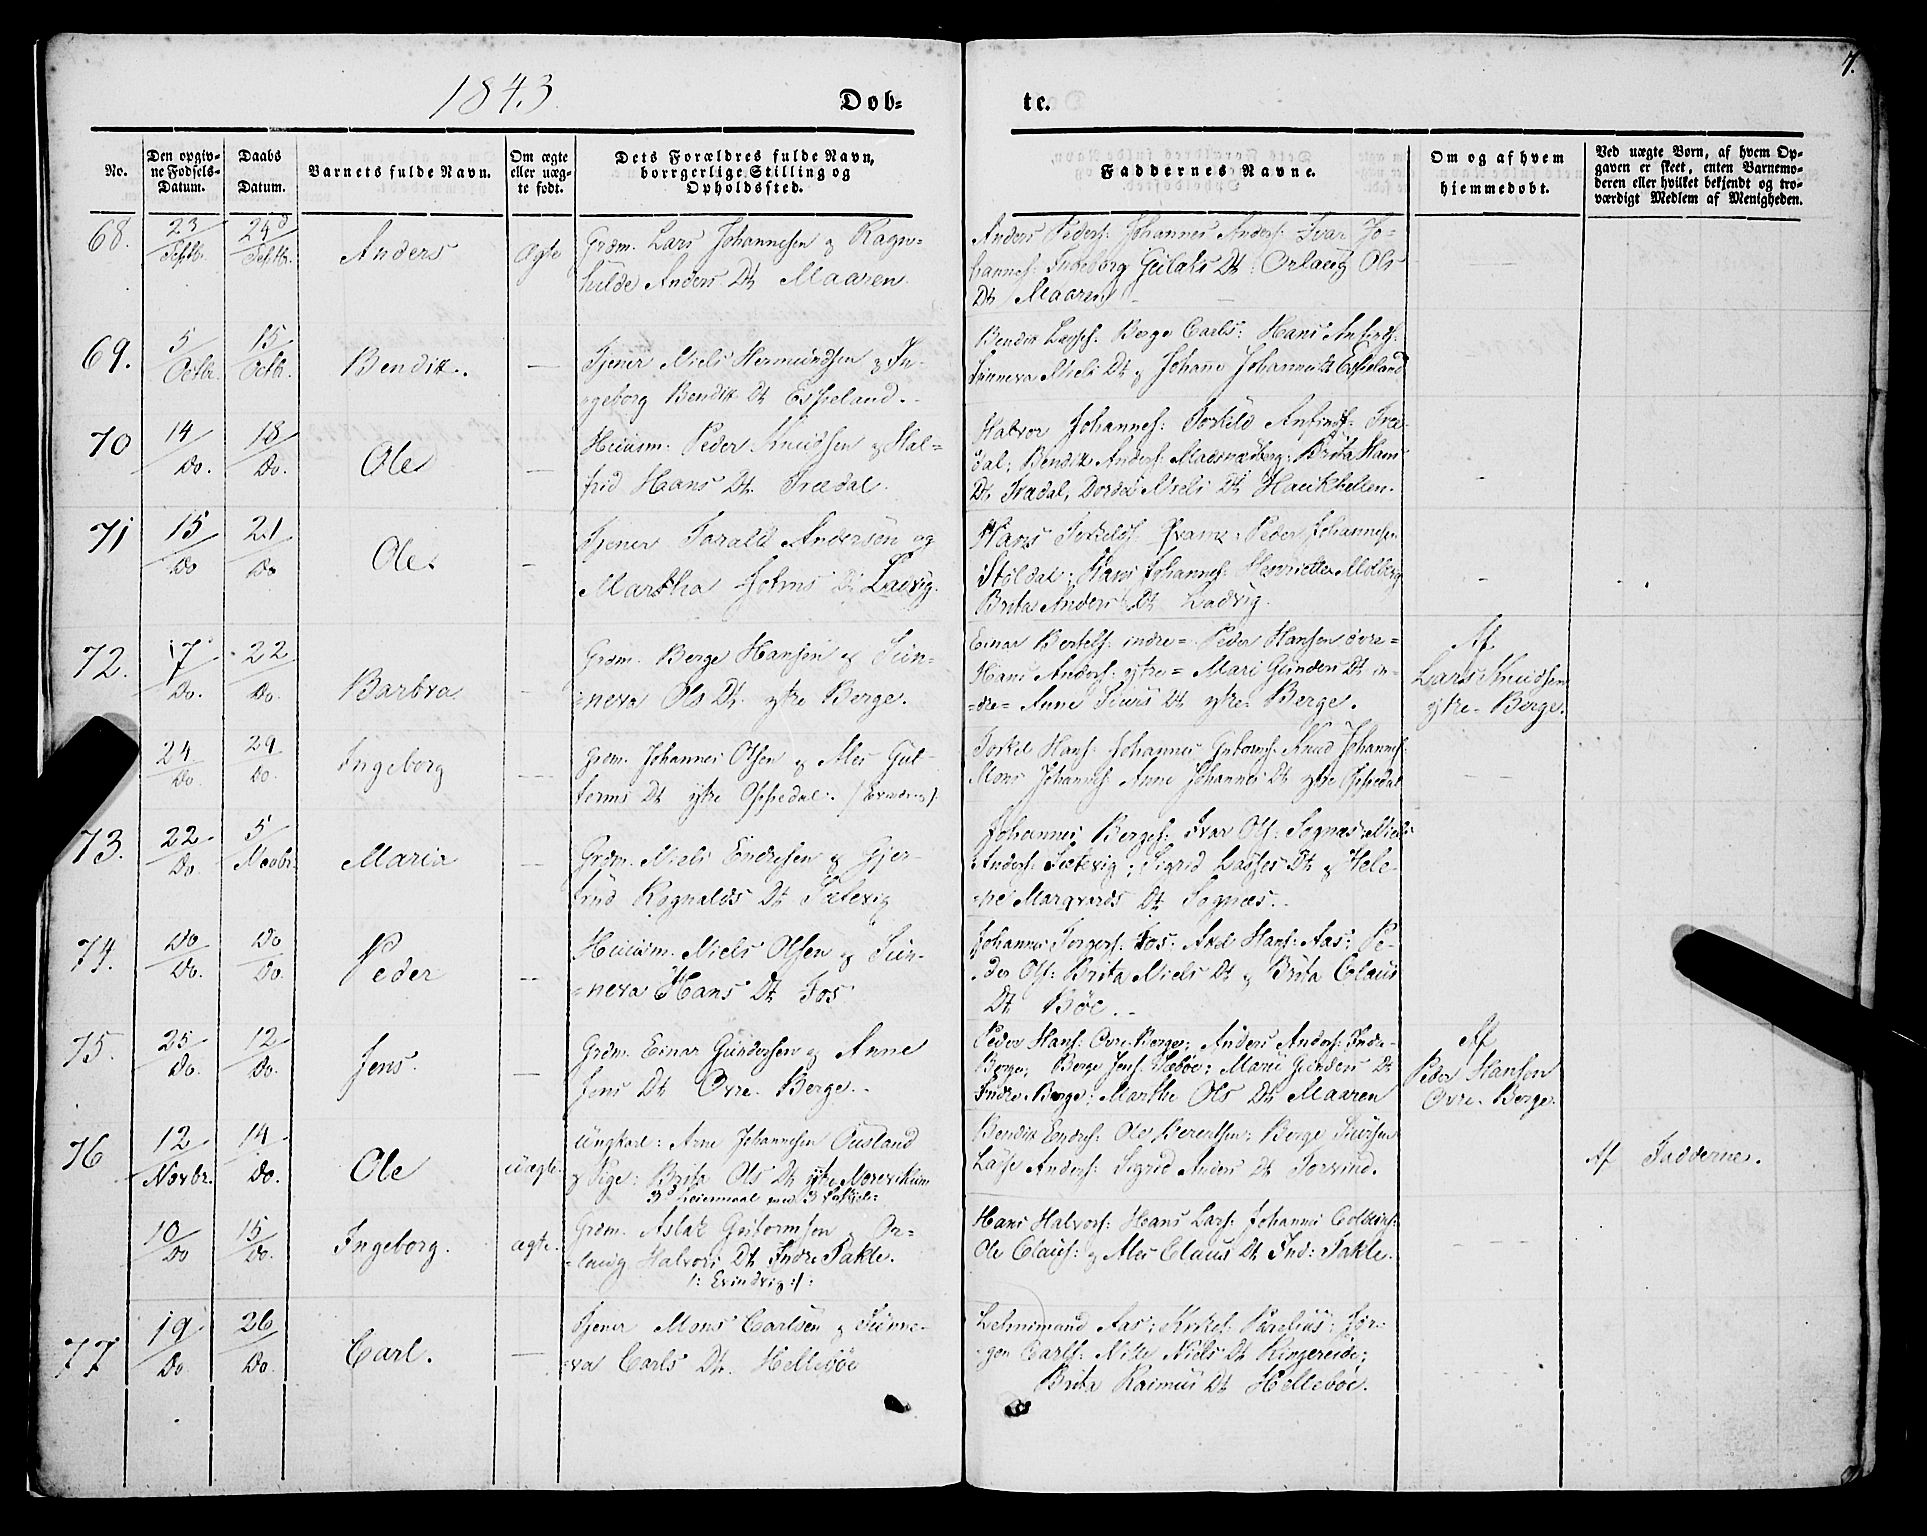 7.
1843.
Døb-
te.
No.
Den opgiv-
ne Fødsels-
Datum.
Daabs
Datum.
Barnets fulde Navn.
Om ægte
eller uæg-
te født.
Dets Forældres fulde Navn,
borrgerlige Stilling og
Opholdssted.
Faddernes Navne.
Om og af hvem
hjemmedøbt.
Ved uægte Børn, af hvem Op-
gaven er skeet, enten Barnemo-
deren eller hvilket bekjendt og tro-
værdigt Medlem af Menigheden.
68.
23 Septbr.
24 Septbr.
Anders
Ægte
Grdm. Lars Johannesen & Ragn-
hilde Anders Dt Maaren.
Anders Peders: Johannes Anders: Ivar Jo-
hannes: Ingeborg Gulaks Dt: Orlaug Ols
Dt Maaren
69.
5 Octbr.
15 Octbr.
Bendix.
Tjener Niels Hermundsen & In-
geborg Bendix Dt Espeland.
Bendix Lasses: Berge Carls: Hans
Sunneva Niels Dt & Johanne Johannes Dt Espeland
70
14 Do.
18 Do.
Ole
Huusm. Peder Knudsen & Hal-
frid Hans Dt. Trædal.
Halvor Johannes: Torkild Anfinds: Træ-
dal; Bendix Anders: Brita Hans
Dt Trædal, Dordei Niels Dt
71
15 Do
21 Do
Ole.
Tjener Torald Andersen og
Martha Johns Dt Ladvig.
Hans Torkilds: Peder Johannesen
Stildal; Hans Johannes: Henriette
Brita Anders Dt Ladvig.
72.
17 Do.
22 Do.
Barbra
Grdm. Berge Hansen & Sün-
=neva Ols Dt. ytre Berge.
Einar Bertels: indre= Peder Hansen övre=
Hans Anders: ytre= Mari Gunders Dt in-
=dre= Anne Siurs Dt ytre Berge.
Af
Lars Knudsen
ytre Berge.
24 Do.
29 Do.
Ingeborg
Grdm. Johannes Olsen & Ales Gut-
torms Dt ytre Oppedal.
Torkel Hans: Johannes Gutorms: Knud Johannes:
Mons Johannes: Anne Johannes Dt ytre Oppedal
73.
22 Do.
5 Novbr.
Maria
Grdm. Niels Endresen & Gjer-
trud Rognalds Dt Sætevig
Johannes Berges: Ivar Ols: Sognæs Niels
Anders: Sætevig; Sigrid Lasses Dt & Hele-
=ne Marqvards Dt Sognæs.
74.
Do Do.
Do Do.
Peder
Huusm. Niels Olsen & Sün-
=neva Hans Dt Fos
Johannes Torgers: Fos. Axel Hans: Aas; Pe-
der Ols: Brita Niels Dt & Brita Colaus
Dt Böe.
75.
25 Do.
12 Do.
Jens.
Grdm. Einar Gundersen & Anne
Jens Dt Ovre Berge.
Peder Hans: Ovre Berge; Anders Anders: Indre
Berge; Berge Jens: Marie Gunders Dt
Indre Berge; Marthe Ols Dt Maaren
Af
Peder Hansen
Ovre Berge.
76
12 Novbr.
14 Do.
Ole
uægte
Ungkarl: Arne Johannesen Ousland
& Pige: Brita Ols Dt ytre
3d Leiermaal med 3
Bendix Endres: Ole Berentsen; Berge Siursen
Lasse Anders: Sigrid Anders Dt Torvind.
Af Faddernes.
10 Do
15 Do.
Ingeborg.
ægte.
Grdm. Aslak Guttormsen & Or-
=laug Halvors Dt Indre Takle.
/: Evindvig :/.
Hans Halvors: Hans Lars: Johannes
Ole Claus: & Ales Claus Dt Ind: Takle.
77
19 Do
26 Do.
Carl.
Tjener Mons Carlsen & Sünne-
=va Carls Dt. Helleböe
Lehnsmand Aas; Kirkes: Parelius; Jør-
gen Carls: Nille Niels Dt Ringereide;
Brita Rasmus Dt Helleböe.